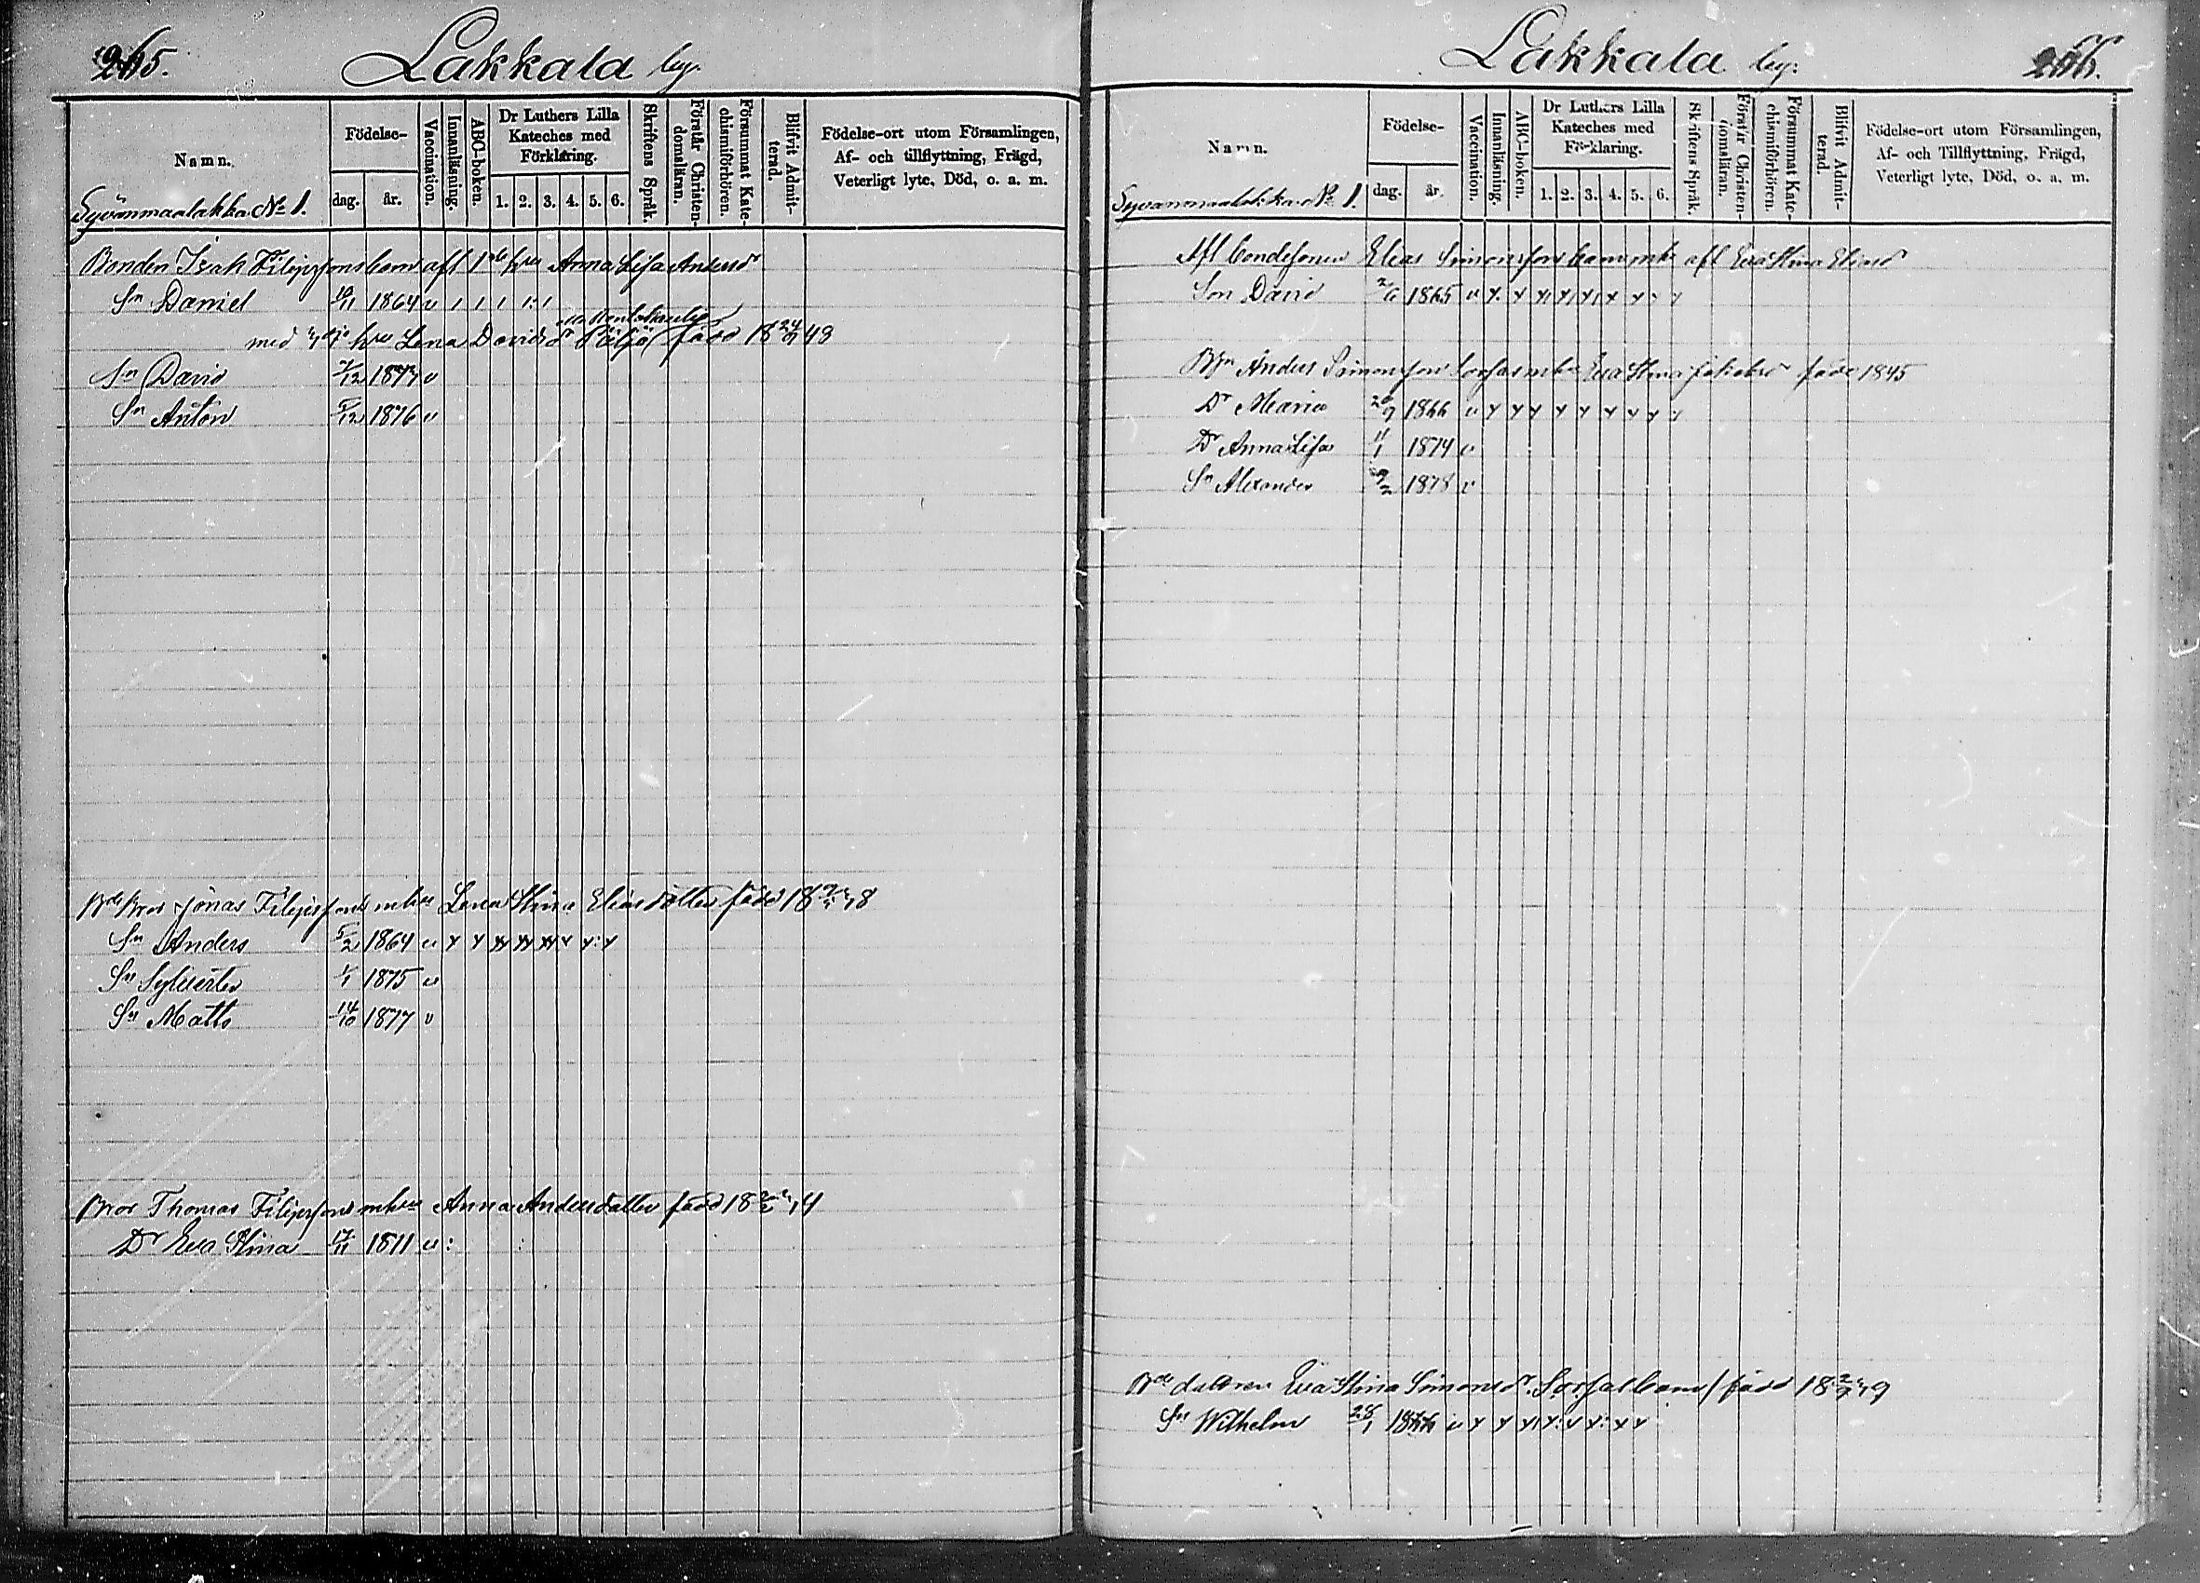 265.
Lakkala by.
Namn.
Födelse-
dag.
år.
Vaccination.
Innanläsning.
ABC-boken.
Dr Luthers Lilla
Kateches med
Förklaring.
1. 2. 3. 4. 5. 6.
Skriftens Språk.
Förstår Christen-
domsläran.
Försummat Kate-
chismiförhören.
Blifvit Admit-
terad.
Födelse-ort utom Församlingen,
Af- och tillflyttning, Frägd,
Veterligt lyte, Död, o. a. m.
Syvänmaalakka No 1.
Bonden Isak Filipsfons barn afl 1sta hu Anna Lisa Andersdr
Sn Daniel 1864 v
med hu Lena Davidsdr född 18 48
Sn David 7/12 1877 v
Sn Anton 5/12 1876 v
Bde Bror Jonas Filipsfons mhu Lena Stina Eliasdotter född 18 48
Sn Anders 5/2 1864 v x x x x x x x x
Sn Sylvester 1/1 1875 v
Sn Matts 14/10 1877 v
Bror Thomas Filipsfons mhu Anna Andersdotter född 18 44
Dr Eva Stina 17/11 1871 v :
266.
Lakkala by.
Namn.
Födelse-
dag.
år.
Vaccination.
Innanläsning.
ABC-boken.
Dr Luthers Lilla
Kateches med
Förklaring.
1. 2. 3. 4. 5. 6.
Skriftens Språk.
Förstår Christen-
domsläran.
Försummat Kate-
chismiförhören.
Blifvit Admit-
terad.
Födelse-ort utom Församlingen,
Af- och Tillflyttning, Frägd,
Veterligt lyte, Död, o. a. m.
Syvänmaalakka No 1.
Afl bondesonen Elias Simonsfons barn mhu afl Eva Stina Eliasd
Son David 2/6 1865 v x x x x x x x x
Anders Simonsfon mhu Eva Stina Jakobsdr född 1845
Dr Maria 1866 v x x x x x x x x
Dr Anna Lisa 1874 v
Sn Alexander 1878 v
Bde dottren Eva Stina Simonsdr barn född 18 49
Sn Wilhelm 28/1 1866 v x x x x x x x x